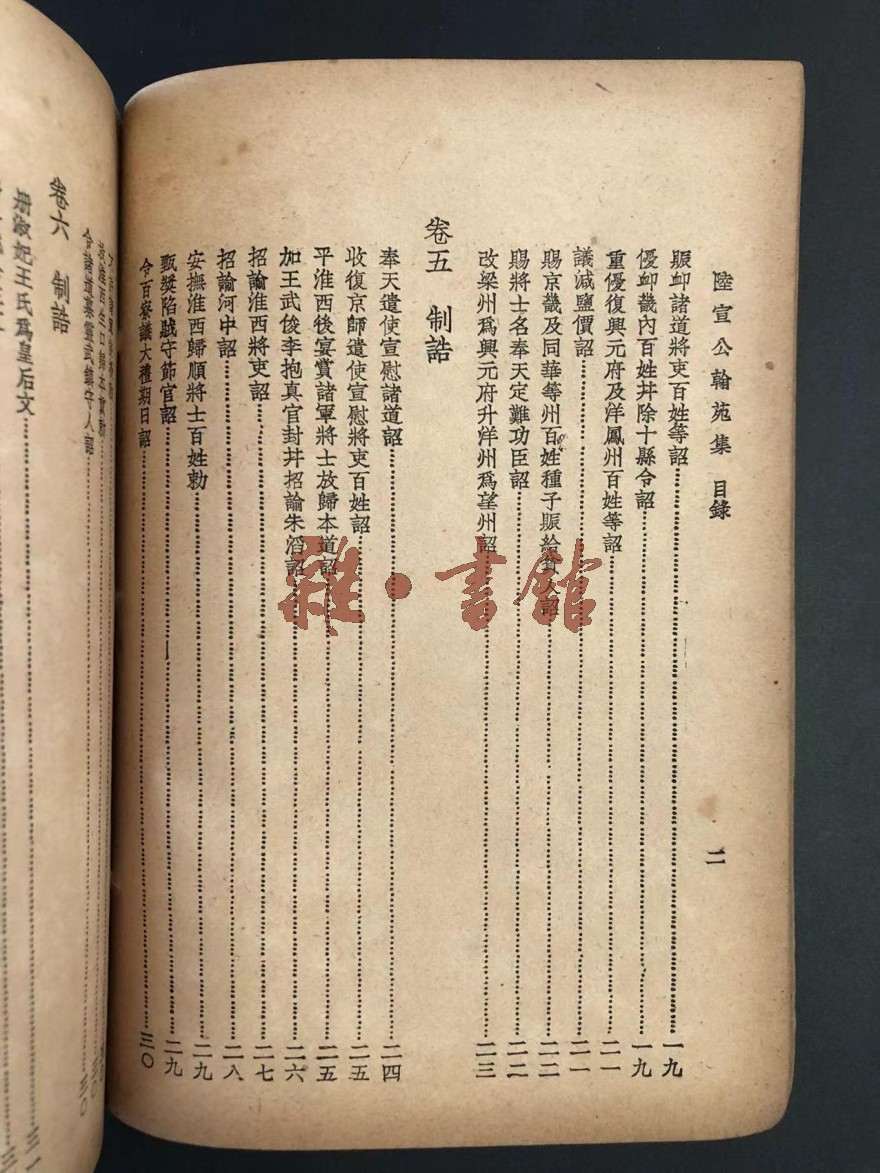 陸宣公翰苑集 目錄 二
賑卹諸道將吏百姓等詔 一九
優卹畿內百姓幷除十縣令詔 一九
重優復興元府及洋鳳州百姓等詔 二一
議減鹽價詔 二一
賜京畿及同華等州百姓種子賑給貧人詔 二二
賜將士名奉天定難功臣詔 二二
改梁州爲興元府升洋州爲望州詔 二三
卷五 制誥
奉天遣使宣慰諸道詔 二四
收復京師遣使宣慰將吏百姓詔 二五
平淮西後宴賞諸軍將士放歸本道詔 二五
加王武俊李抱真官封幷招諭朱滔詔 二六
招諭淮西將吏詔 二七
招諭河中詔 二八
安撫淮西歸順將士百姓勅 二九
甄獎陷賊守節官詔 二九
令百寮議大禮期日詔 三〇
令諸道募靈武鎮守人詔
卷六 制誥
册淑妃王氏爲皇后文
雜·書館